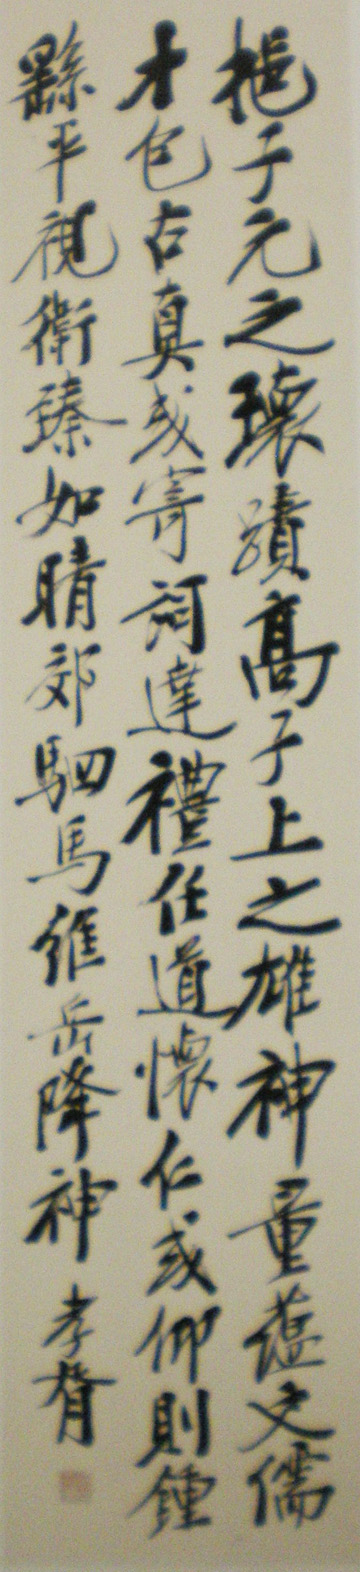 挹子元之瓌蹟高子上之雄神量蘊文儒
才包古真或寄訶達禮任道懷仁或仰則鍾
繇平視衛臻如晴郊駟馬維岳降神 孝胥